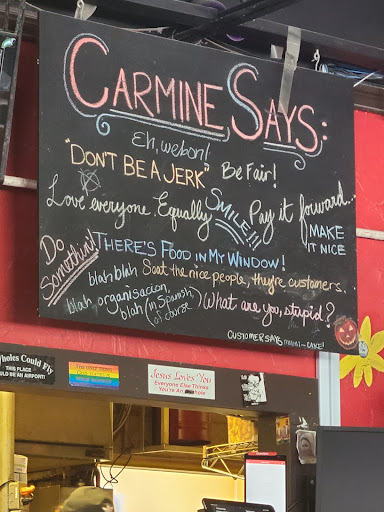 CARMINE SAYS:
Eh, webon!
"DON'T BE A JERK" Be Fair!
Love everyone Equally SMILE!!! Pay it forward...
MAKE IT NICE
Do Somethin! THERE'S FOOD IN MY WINDOW!
blah blah Seat the nice people, they're customers.
blah organisacion blah (in Spanish, of course) What are you, stupid?
CUSTOMER SAYS
holes Could Fly
THIS PLACE
LD BE AN AIRPORT!
Jesus Loves You
Everyone Else Thinks
You're An hole